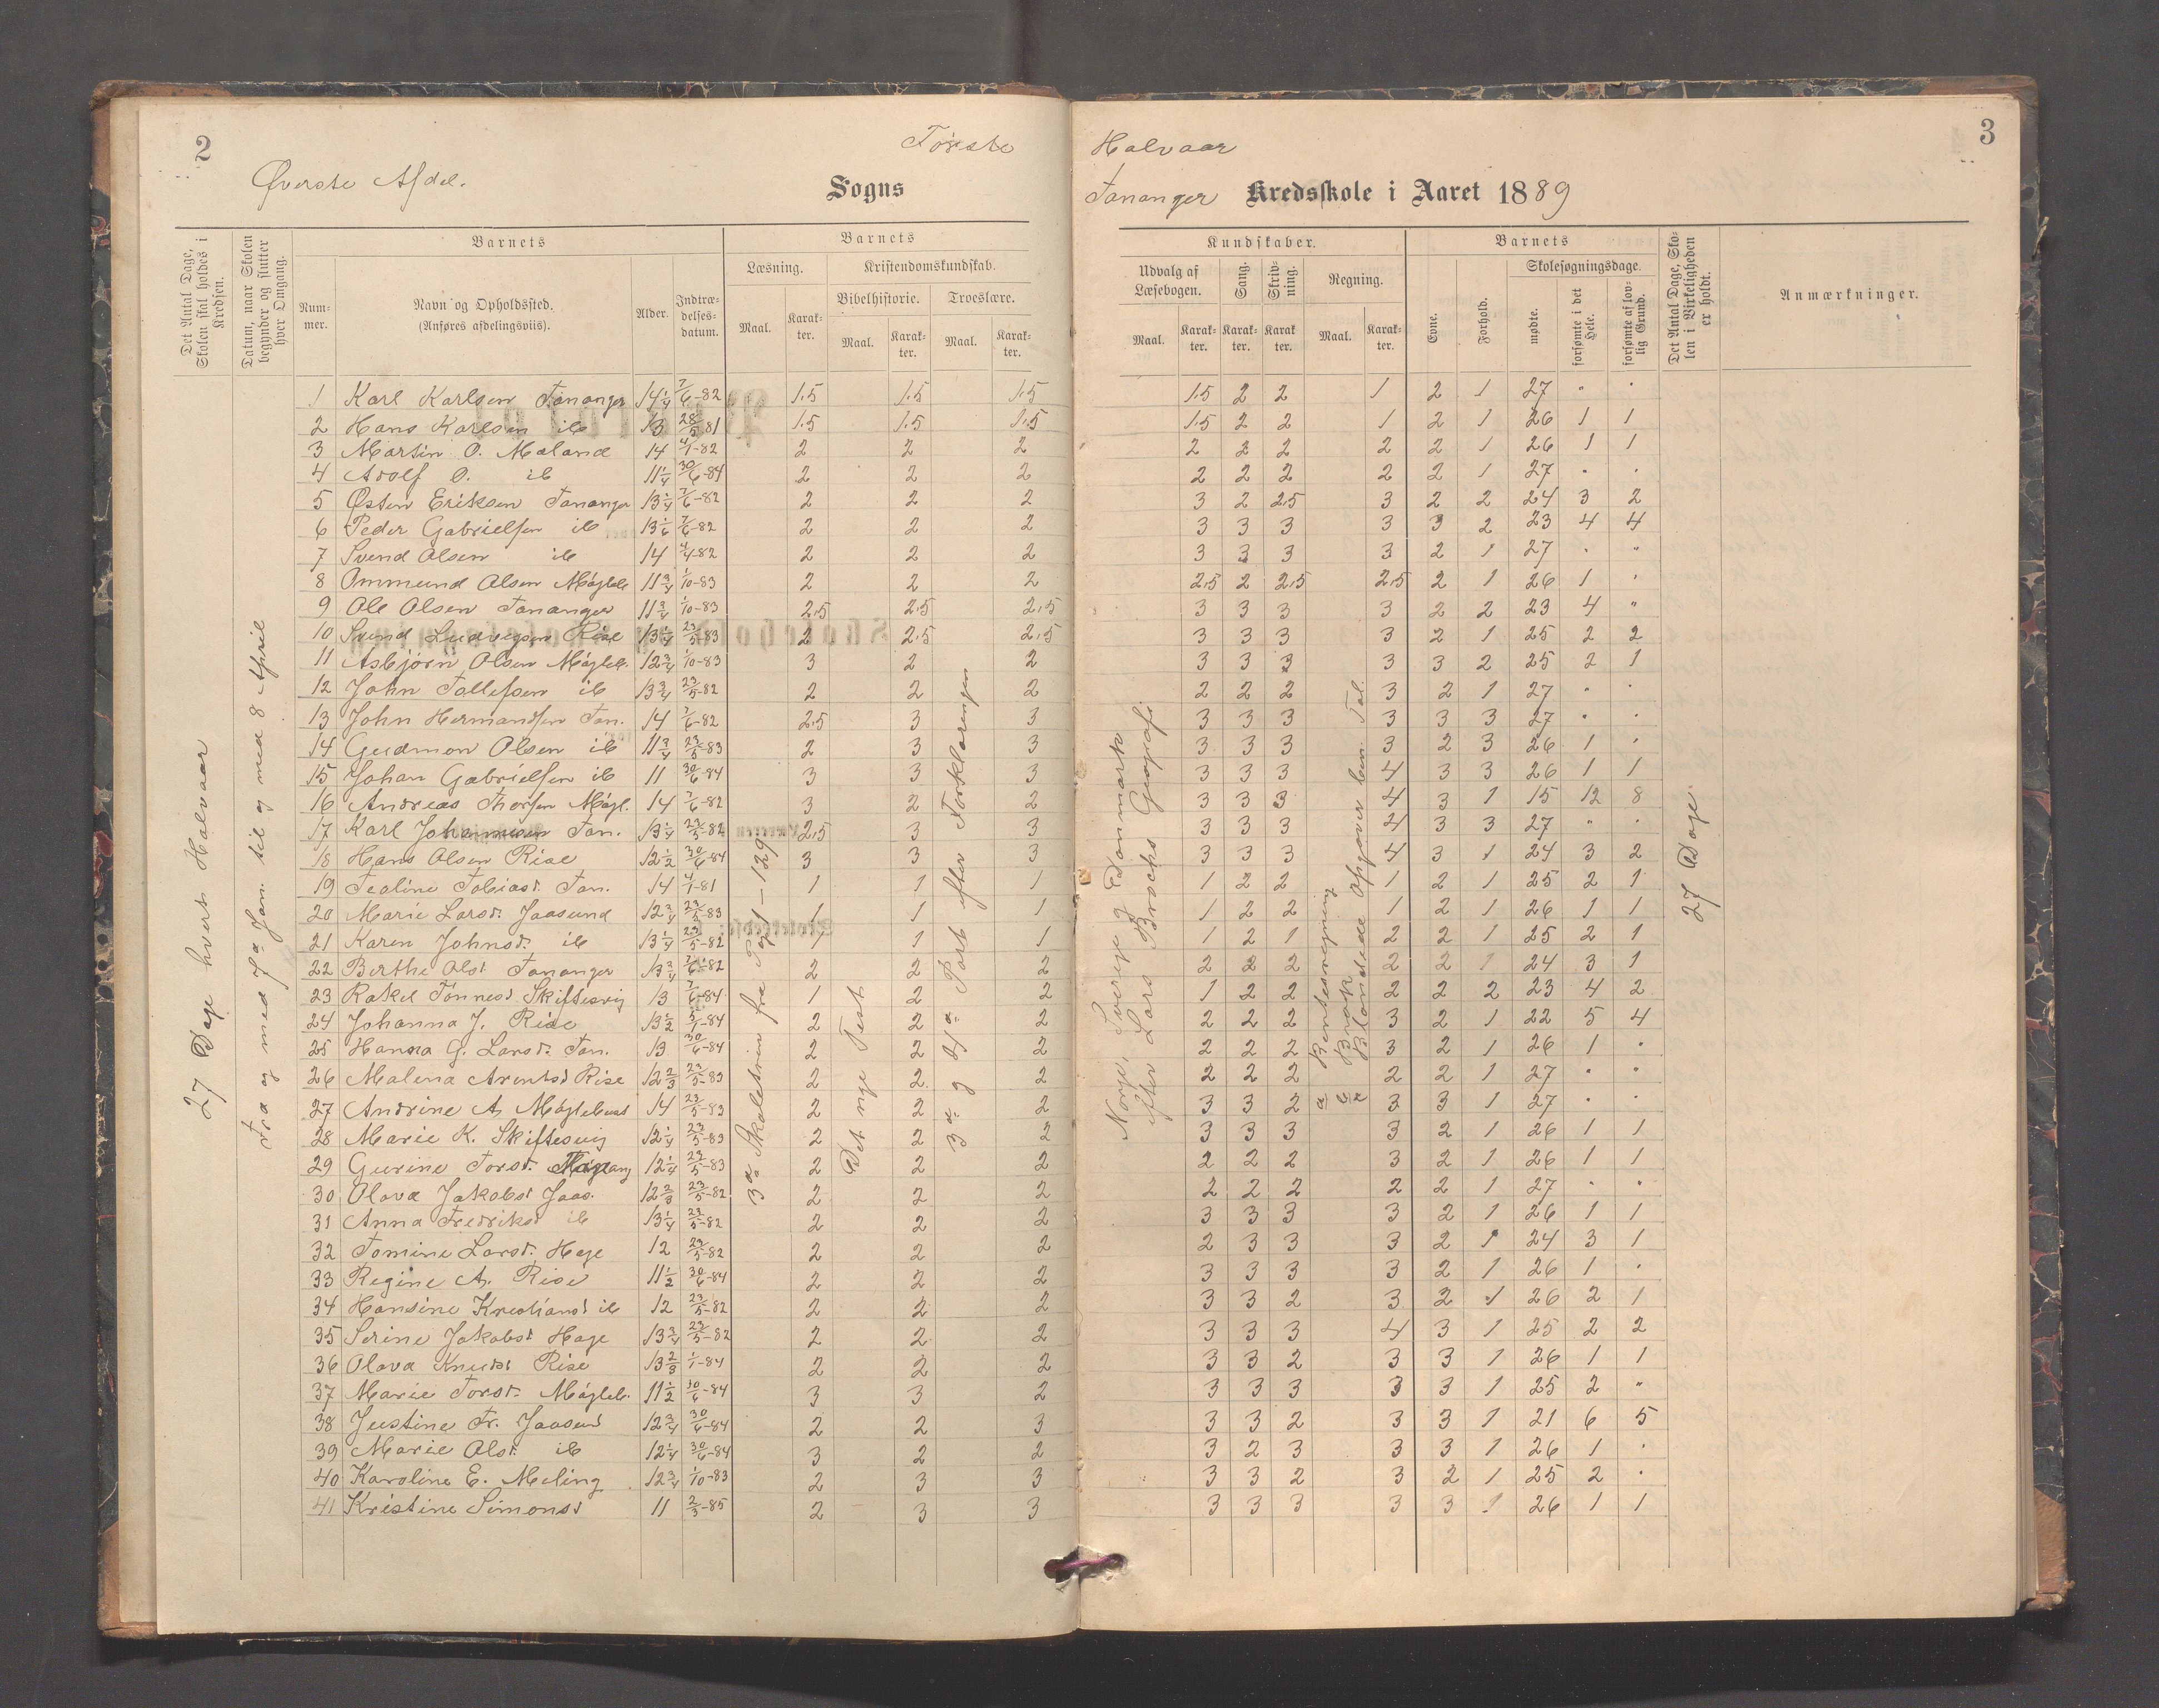 2
Første
Halvaar
3
Øverste Afdel.
Sogns
Tananger Kredsskole i Aaret 1889
Det Antal Dage, Skolen skal holdes i Kredsen.
Datum, naar Skolen begynder og slutter hver Omgang.
Barnets
Nummer.
Navn og Opholdssted.
(Anføres afdelingsviis).
Alder.
Indtrædelsesdatum.
Barnets
Læsning.
Maal.
Karakter.
Kristendomskundskab.
Bibelhistorie.
Maal.
Karakter.
Troeslære.
Maal.
Karakter.
Kundskaber.
Udvalg af Læsebogen.
Maal.
Karakter.
Sang.
Karakter.
Skrivning.
Karakter
Regning.
Maal.
Karakter.
Barnets
Evne.
Forhold.
Skolesøgningsdage.
mødte.
forsømte i det Hele.
forsømte af lovlig Grund.
Det Antal Dage, Skolen i Virkeligheden er holdt.
Anmærkninger.
27 Dage hvert Halvaar
Fra og med 7de Jan. til og med 8 April
3de Skoletrin fra Pag 1 – 129
Det nye Test
3de og 4de Part efter Forklaringen
Norge, Sverige og Danmark
efter Lars Brochs Geografi
a Rentesregning
b Brøk
c Blandede Opgaver
27 Dage
1 Karl Karlsen Tananger 14 1/4 7/6-82 1.5 1.5 1.5 1.5 2 2 1 2 1 27 " "
2 Hans Karlsen ib 13 28/5 81 1.5 1.5 1.5 1.5 2 2 1 2 1 26 1 1
3 Martin O. Meland 14 4/1-82 2 2 2 2 2 2 2 2 1 26 1 1
4 Adolf O. ib 11 1/4 30/6-84 2 2 2 2 2 2 2 2 1 27 " "
5 Østen Eriksen Tananger 13 1/4 7/6-82 2 2 2 3 2 2.5 3 2 2 24 3 2
6 Peder Gabrielsen ib 13 1/6 7/6-82 2 2 2 3 3 3 3 3 2 23 4 4
7 Svend Olsen ib 14 4/1-82 2 2 2 3 3 3 3 2 1 27 " "
8 Ommund Olsen Mægleb 11 3/4 1/10-83 2 2 2 2.5 2 2.5 2.5 2 1 26 1 "
9 Ole Olsen Tananger 11 3/4 1/10-83 2.5 2.5 2.5 3 3 3 3 2 2 23 4 "
10 Svend Ludvigsen Risa 13 1/4 23/5-83 2 2.5 2.5 3 3 3 3 2 1 25 2 2
11 Asbjørn Olsen Mægleb. 12 3/4 1/10-83 3 2 2 3 3 3 3 3 2 25 2 1
12 John Tollefsen ib 13 3/4 23/5-82 2 2 2 2 2 2 3 2 1 27 " "
13 John Hermandsen Tan. 14 7/6-82 2.5 3 3 3 3 3 3 3 3 27 " "
14 Gudmon Olsen ib 11 3/4 23/5-83 2 3 3 3 3 3 3 2 3 26 1 "
15 Johan Gabrielsen ib 11 30/6-84 3 3 3 3 3 3 4 3 3 26 1 1
16 Andreas Thorsen Mægl. 14 7/6-82 3 2 2 3 3 3 4 3 1 15 12 8
17 Karl Johannesen Tan. 13 1/4 23/5-82 2.5 3 3 3 3 3 4 3 3 27 " "
18 Hans Olsen Risa 12 1/2 30/6-84 3 3 3 3 3 3 4 3 1 24 3 2
19 Tealine Tobiasd. Tan. 14 4/1-81 1 1 1 1 2 2 1 2 1 25 2 1
20 Marie Larsd. Jaasund 12 3/4 23/5-83 1 1 1 1 2 2 1 2 1 26 1 1
21 Karen Johnsd. ib 13 1/4 23/5-82 1 1 1 1 2 1 2 2 1 25 2 1
22 Berthe Olsd. Tananger 13 3/4 7/6-82 2 2 2 2 2 2 2 2 1 24 3 1
23 Rakel Tønnesd Skiftesvig 13 7/6-84 1 2 2 1 2 2 2 2 2 23 4 2
24 Johanna J. Risa 13 1/2 5/1-84 2 2 2 2 2 2 3 2 1 22 5 4
25 Hanna G. Larsd. Tan. 13 30/6-84 2 2 2 2 2 2 3 2 1 26 1 "
26 Malena Arentsd Risa 12 2/3 23/5-83 2 2 2 2 2 2 2 2 1 27 " "
27 Andrine A. Møglebust 14 23/5-83 2 2 2 3 3 2 3 3 1 27 " "
28 Marie K. Skiftesvig 12 1/4 23/5-83 2 2 2 3 3 3 3 2 1 26 1 1
29 Gurine Torsd. 12 1/4 23/5-83 2 2 2 2 2 2 3 2 1 26 1 1
30 Olava Jakobsd Jaas. 12 2/3 23/5-82 2 2 2 2 2 2 2 2 1 27 " "
31 Anna Fredriksd ib 13 1/4 23/5-82 2 2 2 3 3 3 3 2 1 26 1 1
32 Tomine Larsd. Haga 12 23/5-82 2 2 2 2 3 3 3 2 1 24 3 1
33 Regine A. Risa 11 1/2 30/6-84 2 2 2 3 3 3 3 2 1 26 1 "
34 Hansine Kristiansd ib 12 23/5-82 2 2 2 3 3 2 3 2 1 26 2 1
35 Serine Jakobsd Haga 13 3/4 23/5-82 2 2 2 3 3 3 4 3 1 25 2 2
36 Olava Knudsd Risa 13 2/3 1/1-84 2 2 2 3 3 2 3 3 1 26 1 1
37 Marie Torsd. Mægleb. 11 1/2 30/6-84 3 3 2 3 3 3 3 3 1 25 2 "
38 Justine Fr. Jaasund 12 3/4 30/6-84 2 2 3 3 3 2 3 3 1 21 6 5
39 Marie Olsd. ib 12 1/4 30/6-84 3 2 2 3 2 3 3 3 1 26 1 "
40 Karoline E. Meling 12 3/4 1/10-83 2 3 3 3 3 2 3 2 1 25 2 "
41 Kristine Simonsd 11 2/3-85 2 3 3 3 3 3 3 3 1 26 1 1